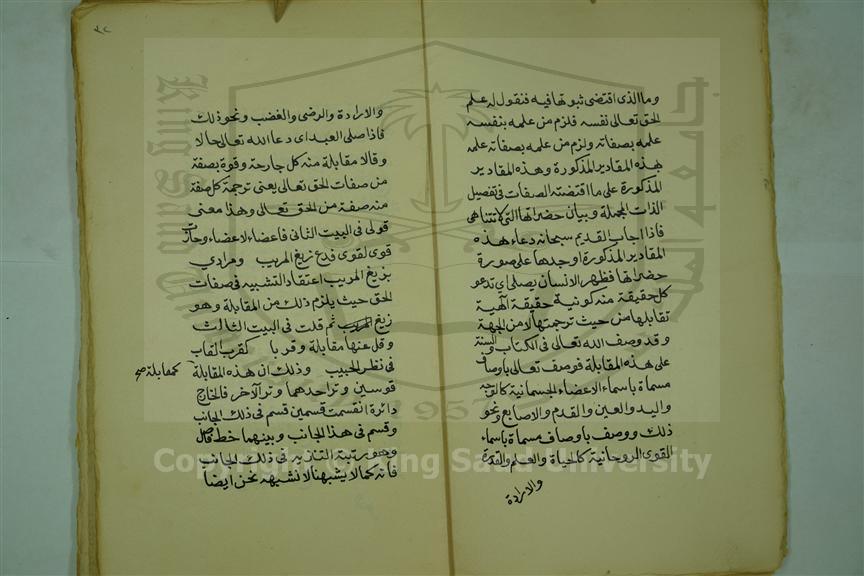 وما الذى اقتضى ثبوتها فيه فنقول له علم
الحق تعالى نفسه فلزم من علمه بنفسه
علمه بصفاته ولزم من علمه بصفاته علمه
بهذه المقادير المذكورة وهذه المقادير
المذكورة على ما اقتضته الصفات فى تفصيل
الذات المجملة وبيان حضراتها التى لا تتناهى
فاذا اجاب القديم سبحانه دعاء هذه
المقادير المذكورة اوجدها على صورة
حضراتها فظهر الانسان يصلى اى تدعو
كل حقيقة منه كونية حقيقة آلهية
تقابلها من حيث ترجمتها لا من الجهة
وقد وصف الله تعالى فى الكتاب والسنة
على هذه المقابلة فوصف تعالى باوصاف
مسماة باسماء الاعضاء الجسمانية كالوجه
واليد والعين والقدم والاصابع ونحو
ذلك ووصف باوصاف مسماة باسماء
القوى الروحانية كالحياة والعلم والقدرة
والارادة
٣٢
والارادة والرضى والغضب ونحو ذلك
فاذا صلى العبد اى دعا الله تعالى حالا
وقالا مقابلة منه كل جارحة وقوة بصفة
من صفات الحق تعالى يعنى ترجمة كل صفة
منه صفة من الحق تعالى وهذا معنى
قولى فى البيت الثانى فاعضاء لاعضاء وجاءت
قوى لقوى فدع زيغ المريب ومرادي
بزيغ المريب اعتقاد التشبيه فى صفات
الحق حيث يلزم ذلك من المقابلة وهو
زيغ المريب ثم قلت فى البيت الثالث
وقل عنها مقابلة وقربا كقرب القاب
فى نظر الحبيب وذلك ان هذه المقابلة
كمقابلة صح
قوسين وتر احدهما وتر الآخر فالخارج
دائرة انقسمت قسمين قسم فى ذلك الجانب
وقسم فى هذا الجانب وبينهما خط فاصل
وهو رتبة التنزيه فى ذلك الجانب
فانه كما لا يشبهنا لا نشبهه نحن ايضا
King Saud University
جامعة الملك سعود
1957
Copyright © King Saud University